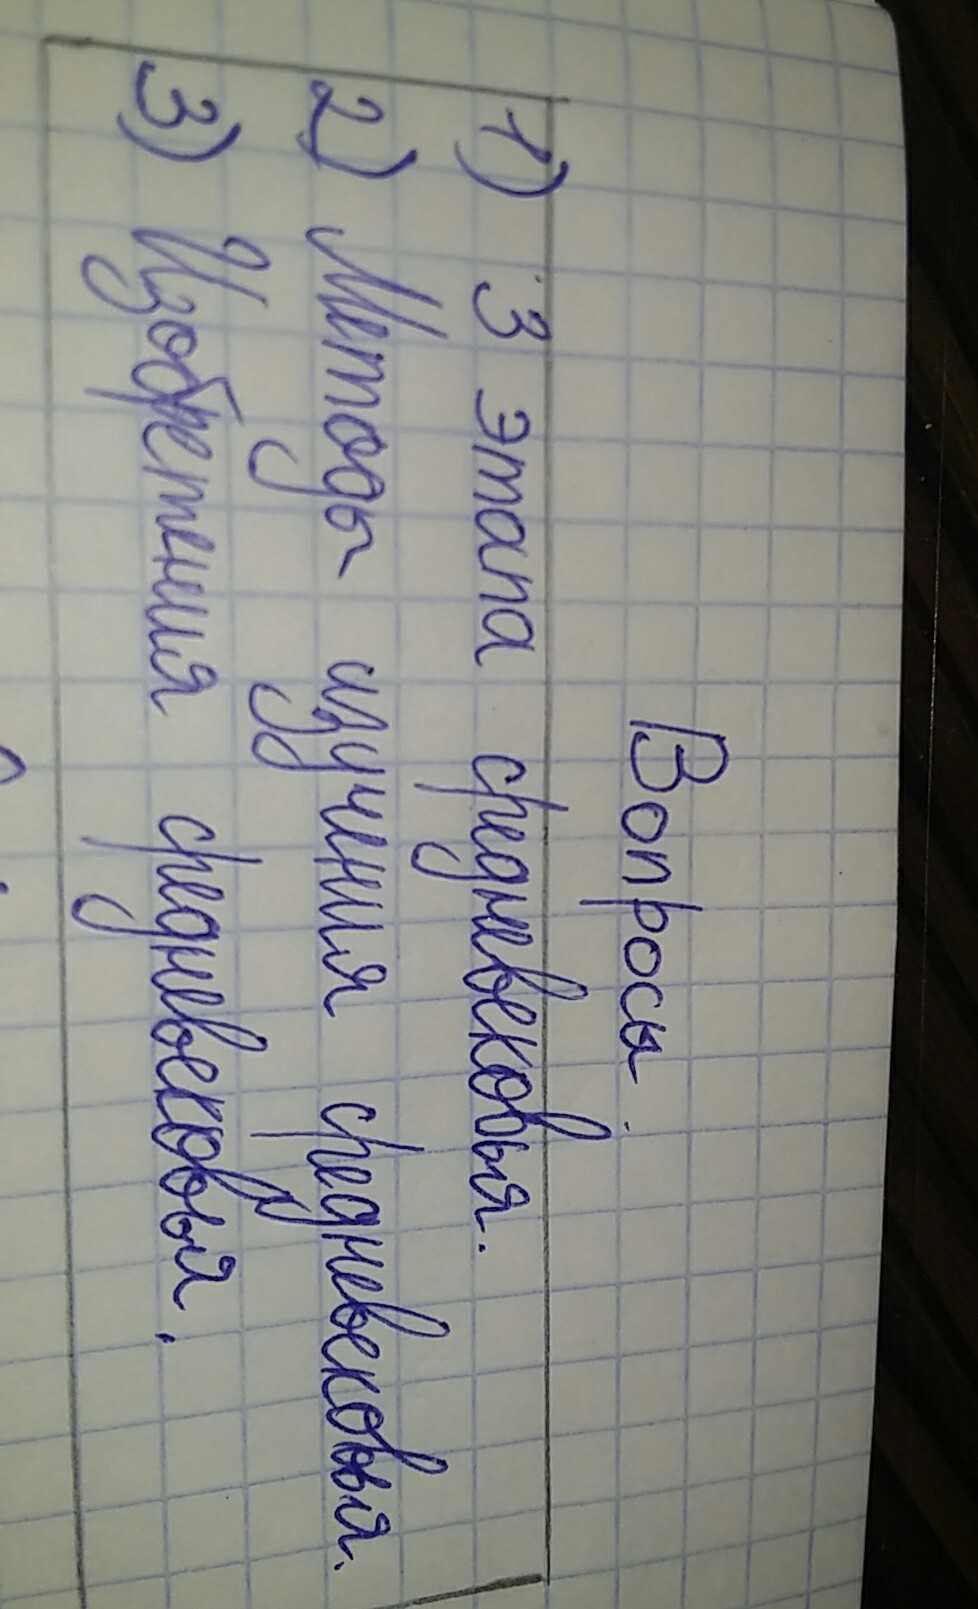 Вопросы:
1) 3 этапа средневековья.
2) Методы изучения средневековья.
3) Изобретения средневековья.